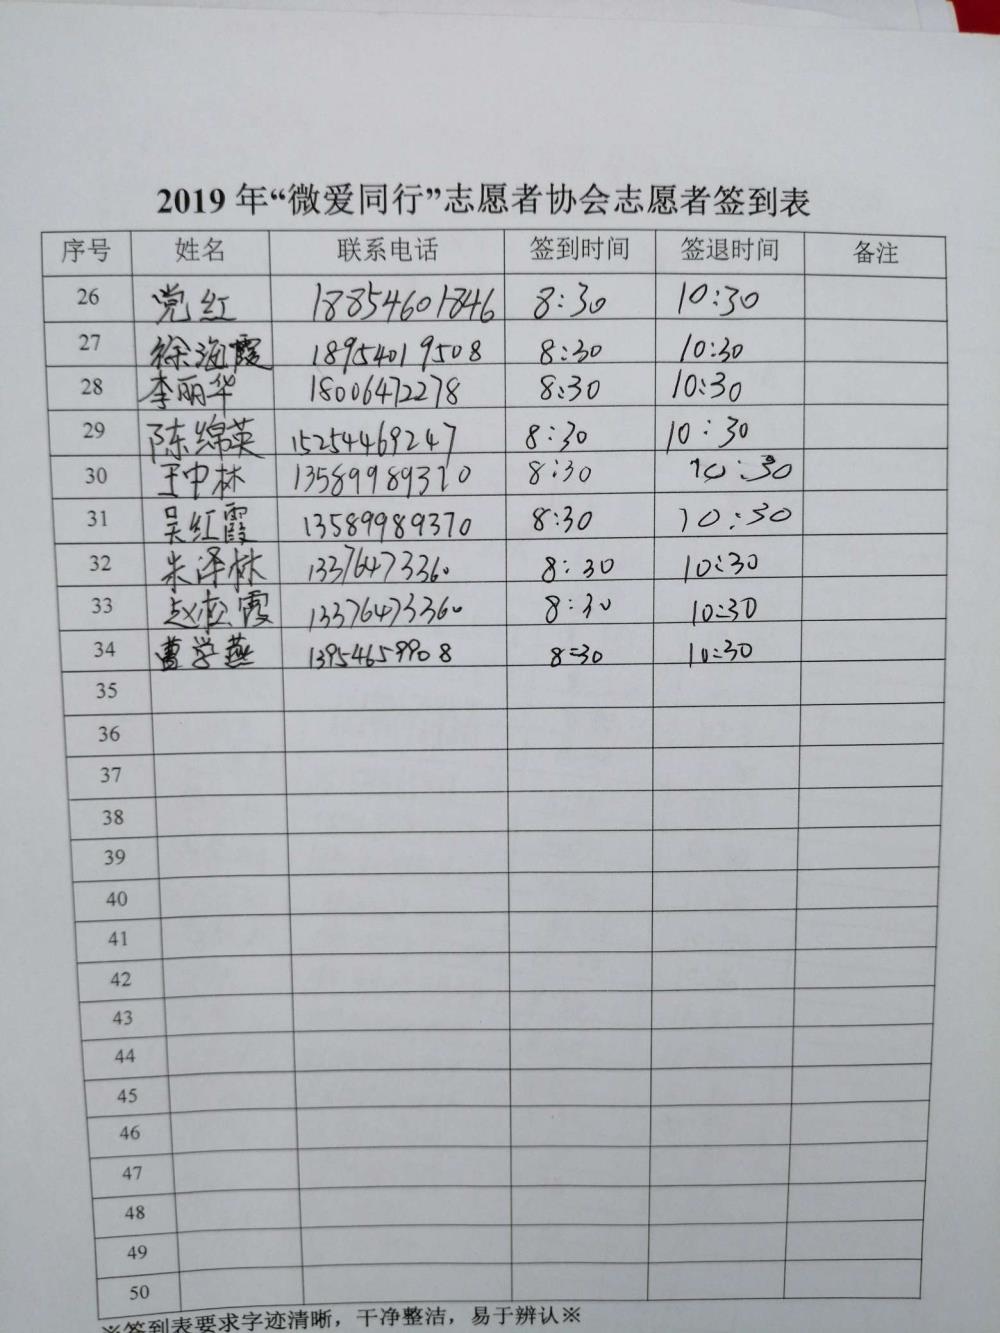 2019年“微爱同行”志愿者协会志愿者签到表
序号 姓名 联系电话 签到时间 签退时间 备注
26 党红 18854601846 8:30 10:30
27 徐海霞 18954019508 8:30 10:30
28 李丽华 18006472278 8:30 10:30
29 陈绵英 15254469247 8:30 10:30
30 王中林 13589989370 8:30 10:30
31 吴红霞 13589989370 8:30 10:30
32 朱泽林 13376473360 8:30 10:30
33 赵松霞 13376473360 8:30 10:30
34 曹学燕 13954659908 8:30 10:30
35
36
37
38
39
40
41
42
43
44
45
46
47
48
49
50
※签到表要求字迹清晰，干净整洁，易于辨认※